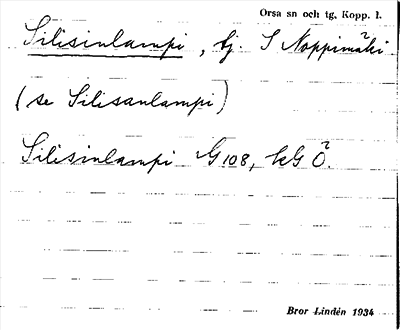 Orsa sn och tg, Kopp. l.
Silisinlampi, tj. S Noppimäki
(se Silisanlampi)
Silisinlampi G 108, kG Ö.
Bror Lindén 1934